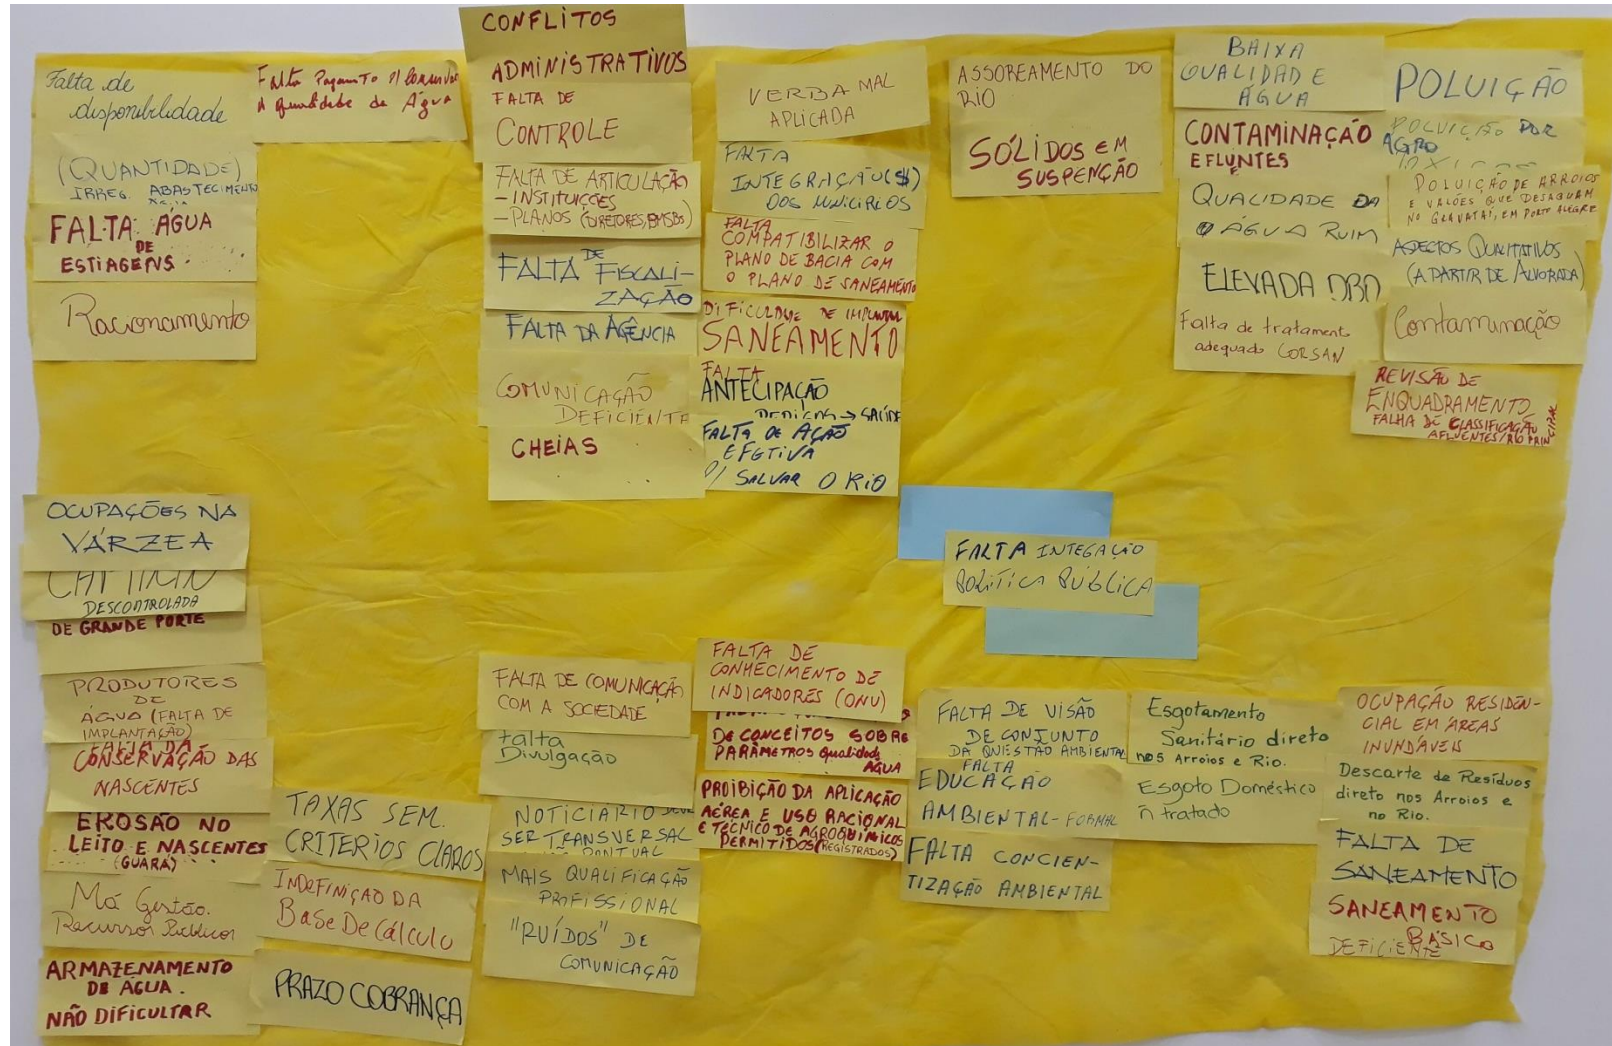 Falta de
disponibilidade
(QUANTIDADE)
IRREG. ABASTECIMENTO
FALTA ÁGUA
DE
ESTIAGENS
Racionamento
Falta Pagamento p/ Conservar
A qualidade da Água
CONFLITOS
ADMINISTRATIVOS
FALTA DE
CONTROLE
FALTA DE ARTICULAÇÃO
- INSTITUIÇÕES
- PLANOS (DIRETORES/PMSBs)
FALTA DE FISCALI-
ZAÇÃO
FALTA DA AGÊNCIA
COMUNICAÇÃO
DEFICIENTE
CHEIAS
VERBA MAL
APLICADA
FALTA
INTEGRAÇÃO ($)
DOS MUNICIPIOS
FALTA
COMPATIBILIZAR O
PLANO DE BACIA COM
O PLANO DE SANEAMENTO
DIFICULDADE DE IMPLANTAR
SANEAMENTO
FALTA
ANTECIPAÇÃO
→ SAÚDE
FALTA DE AÇÃO
EFETIVA
P/ SALVAR O RIO
ASSOREAMENTO DO
RIO
SÓLIDOS EM
SUSPENÇÃO
BAIXA
QUALIDADE
ÁGUA
CONTAMINAÇÃO
EFLUNTES
QUALIDADE DA
ÁGUA RUIM
ELEVADA DBO
Falta de tratamento
adequado CORSAN
POLUIÇÃO
POLUIÇÃO POR
AGRO
POLUIÇÃO DE ARROIOS
E VALÕES QUE DESAGUAM
NO GRAVATAÍ, EM PORTO ALEGRE
ASPECTOS QUALITATIVOS
(A PARTIR DE ALVORADA)
Contaminação
REVISÃO DE
ENQUADRAMENTO
FALHA DE CLASSIFICAÇÃO
AFLUENTES/RIO PRINCIPAL
OCUPAÇÕES NA
VÁRZEA
DESCONTROLADA
DE GRANDE PORTE
PRODUTORES
DE
ÁGUA (FALTA DE
IMPLANTAÇÃO)
FALTA DA
CONSERVAÇÃO DAS
NASCENTES
EROSÃO NO
LEITO E NASCENTES
(GUARÁ)
Má Gestão
Recursos Públicos
ARMAZENAMENTO
DE ÁGUA.
NÃO DIFICULTAR
TAXAS SEM
CRITERIOS CLAROS
INDEFINIÇÃO DA
Base De Cálculo
PRAZO COBRANÇA
FALTA DE COMUNICAÇÃO
COM A SOCIEDADE
falta
Divulgação
NOTICIÁRIO DEVE
SER TRANSVERSAL
PONTUAL
MAIS QUALIFICAÇÃO
PROFISSIONAL
"RUÍDOS" DE
COMUNICAÇÃO
FALTA DE
CONHECIMENTO DE
INDICADORES (ONU)
DE CONCEITOS SOBRE
PARÂMETROS qualidade
ÁGUA
PROIBIÇÃO DA APLICAÇÃO
AÉREA E USO RACIONAL
E TÉCNICO DE AGROQUÍMICOS
PERMITIDOS (REGISTRADOS)
FALTA INTEGAÇÃO
POLÍTICA PÚBLICA
FALTA DE VISÃO
DE CONJUNTO
DA QUESTÃO AMBIENTAL
FALTA
EDUCAÇÃO
AMBIENTAL-FORMAL
FALTA CONCIEN-
TIZAÇÃO AMBIENTAL
Esgotamento
Sanitário direto
nos Arroios e Rio.
Esgoto Doméstico
ñ tratado
OCUPAÇÃO RESIDEN-
CIAL EM ÁREAS
INUNDÁVEIS
Descarte de Resíduos
direto nos Arroios e
no Rio.
FALTA DE
SANEAMENTO
SANEAMENTO
BÁSICO
DEFICIENTE